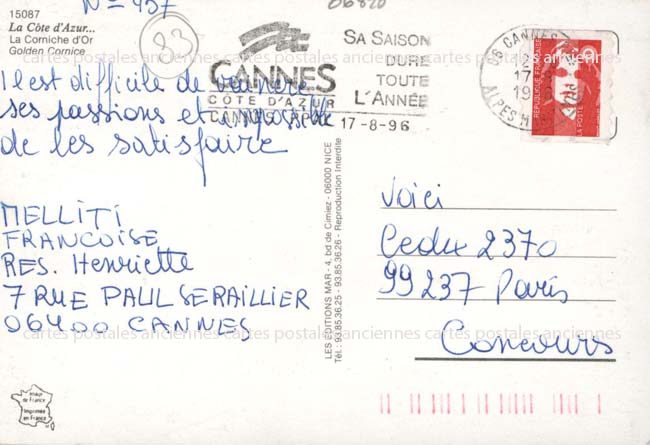 N= 457
06820
15087
La Côte d'Azur...
La Corniche d'Or
Golden Cornice
83
CANNES
CÔTE D'AZUR
SA SAISON
DURE
TOUTE
L'ANNÉE
17-8-96
06 CANNES
17
19
ALPES M
REPUBLIQUE FRANCAISE
LA POSTE
Il est difficile de vaincre
ses passions et impossible
de les satisfaire
MELLITI
FRANCOISE
RES. Henriette
7 RUE PAUL SERAILLIER
06400 CANNES
LES ÉDITIONS MAR - 4, bd de Cimiez - 06000 NICE
Tél.: 93.85.36.25 - 93.85.36.26 - Reproduction Interdite
Voici
Cedex 2370
99 237 Paris
Concours
Imprimée
en France
cartes postales anciennes cartes postales anciennes cartes postales anciennes
cartes postales anciennes cartes postales anciennes cartes postales anciennes